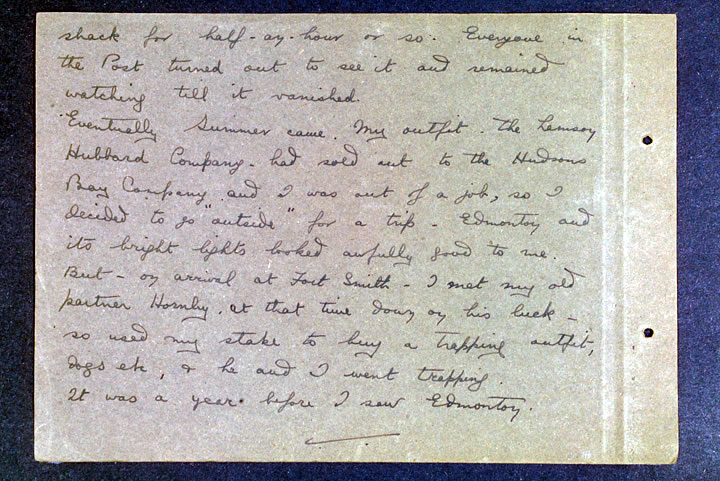 shack for half-an-hour or so. Everyone in
the Post turned out to see it and remained
watching till it vanished.
Eventually Summer came. My outfit - the Lamson
Hubbard Company - had sold out to the Hudsons
Bay Company and I was out of a job, so I
decided to go "outside" for a trip - Edmonton and
its bright lights looked awfully good to me.
But - on arrival at Fort Smith - I met my old
partner Hornby, at that time down on his luck -
so used my stake to buy a trapping outfit,
dogs etc, & he and I went trapping.
It was a year before I saw Edmonton.